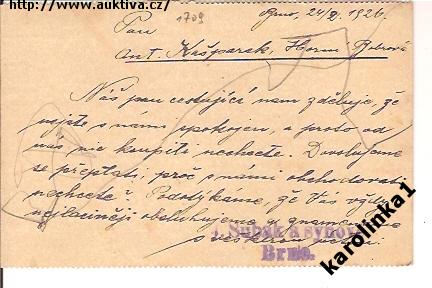 http://www.auktiva.cz/
1709
Brno, 24/ 1926.
Pan
Ant. Kašparek, Horní Bobrová
Náš pan cestující nám zděluje, že
nejste s námi spokojen, a proto od
nás nic koupiti nechcete. Dovolujeme
se přeptati, proč s námi obchodovati
nechcete? Podotýkáme, že Vás vždy
nejlaciněji obsluhujeme a
s veškerou úctou:
J. Subak a synové
Brno.
karolinka1